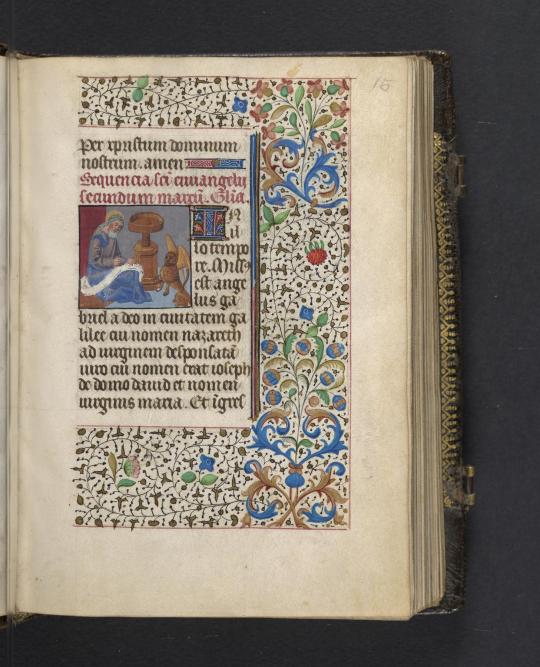 15
Per xpristum dominum
nostrum. amen
Sequencia sci euuangelii
secundum marcū. Gl̄ia.
In il
lo tempo
re. Miss⁹
est ange
lus ga
briel a deo in ciuitatem ga
lilee cui nomen nazareth
ad uirginem desponsatā
uiro cui nomen erat ioseph
de domo dauid et nomen
uirginis maria. Et īgres